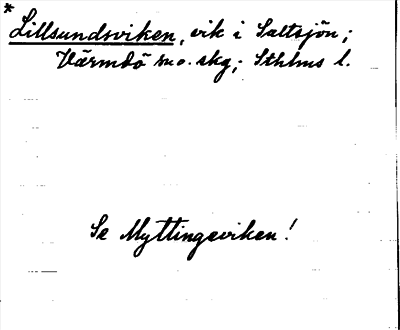 * Lillsundsviken, vik i Saltsjön;
Värmdö sn o. skg; Sthlms l.
Se Myttingeviken!